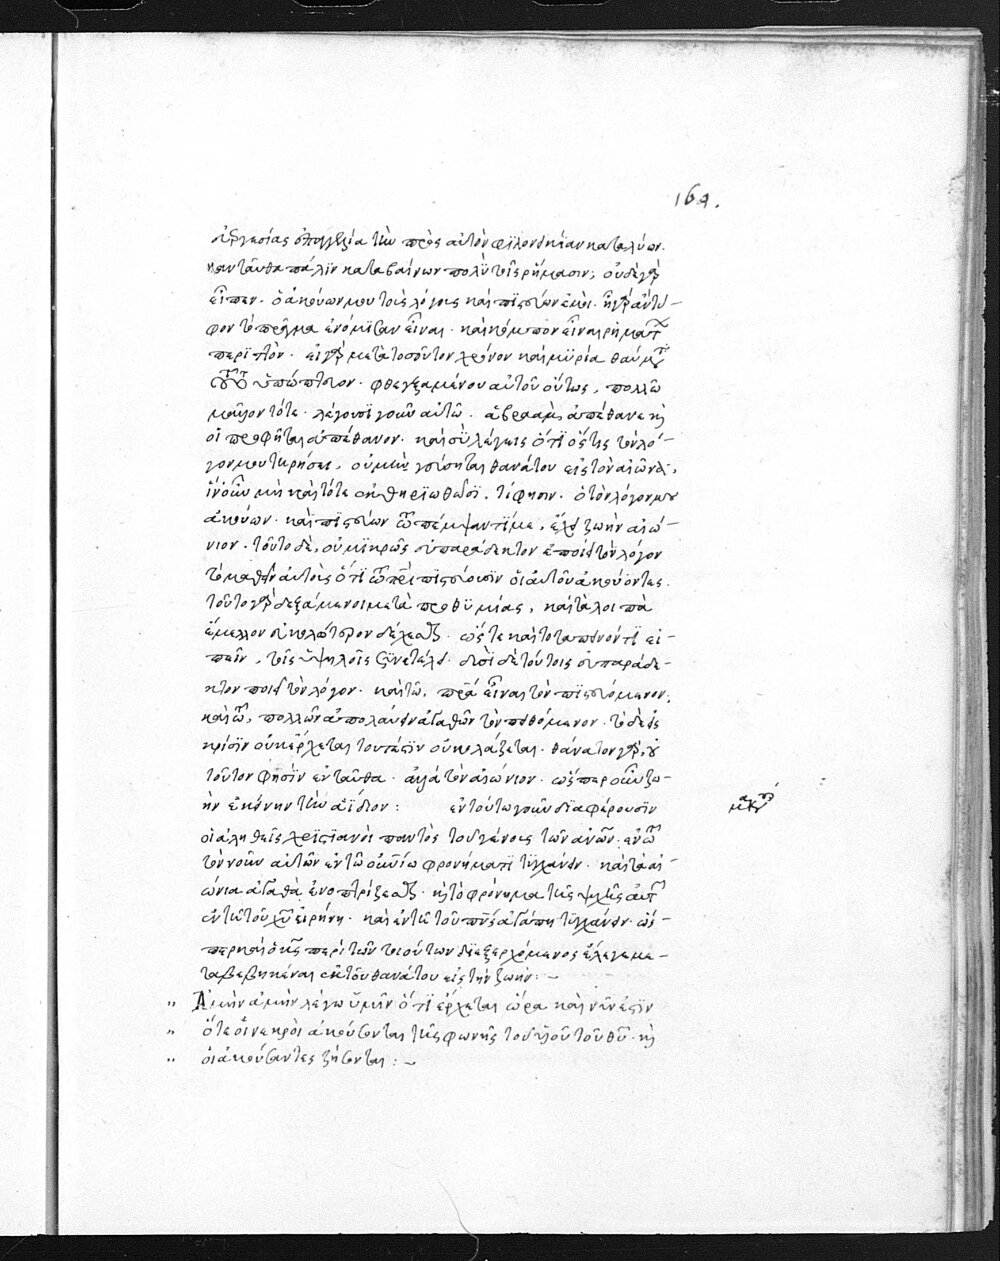 164.
εὐεργεσίας ἐπαγγελία τὴν πρὸς αὐτὸν φιλονεικίαν καταλύων.
κἀνταῦθα πάλϊν καταβαίνων πολὺ τοῖς ῥήμασιν; οὐδὲ γὰρ
εἶπεν. ὁ ἀκούων μου τοὺς λόγους καὶ πϊστεύων ἐμοὶ. ἦ γὰρ ἂν τύ-
φον τὸ πρᾶγμα ἐνόμϊσαν εἶναι. καὶ κόμπον εἶναι ῥημάτων
περϊττὸν. εἰ γὰρ μετὰ τοσοῦτον χρόνον καὶ μϋρία θαύματα
τοῦτο ὑπώπτευον. φθεγξαμένου αὐτοῦ οὕτως, πολλῶ
μᾶλλον τότε. λέγουσϊ γοῦν αὐτῶ. ἀβραὰμ ἀπέθανε κỳ
οἱ προφῆται ἀπέθανον. καὶ σὺ λέγεις ὅτϊ ὅστις τὸν λό-
γον μου τηρήσει, οὐ μὴ γεύσηται θανάτου εἰς τὸν αἰῶνα,
ἵν' οὖν μὴ καὶ τότε ἐκθηρϊωθῶσϊ, τί φησιν. ὁ τὸν λόγον μου
ἀκούων. καὶ πϊστεύων τῶ πέμψαντί με, ἔχει ζωὴν αἰώ-
νιον. τοῦτο δὲ, οὐ μϊκρῶς εὐπαράδεκτον ἐποίει τὸν λόγον
τὸ μαθεῖν αὐτοὺς ὅτϊ τῶ πρὶ πϊστεύουσϊν οἱ αὐτοῦ ἀκούοντες.
τοῦτο γὰρ δεξάμενοι μετὰ προθϋμίας, καὶ τὰ λοιπὰ
ἔμελλον εὐκολώτερον δέχεσθαι. ὥστε καὶ τὸ ταπεινόν τϊ εἰ-
πεῖν, τοῖς ὑψηλοῖς σϋνετέλει. δυσὶ δὲ τούτοις εὐπαράδε-
κτον ποιεῖ τὸν λόγον. καὶ τῶ, πρὰ εἶναι τὸν πϊστευόμενον,
καὶ τῶ, πολλῶν ἀπολαύειν ἀγαθῶν τὸν πειθόμενον. τὸ δὲ εἰς
κρίσϊν οὐκ ἔρχεται τουτέστϊν οὐ κολάζεται. θάνατον γὰρ, οὐ
τοῦτον φησὶν ἐνταῦθα. ἀλλὰ τὸν αἰώνιον. ὥσπερ οὖν ζω-
ὴν ἐκείνην τὴν ἀΐδιον : ἐν τούτω γοῦν διαφέρουσϊν
οἱ ἀληθεῖς χρϊστιανοὶ παντὸς τοῦ γένους τῶν ἀνων. ἐν τῶ
τὸν νοῦν αὐτῶν ἐν τῶ οὐνίω φρονήματϊ τϋγχάνειν. καὶ τὰ αἰ-
ώνια ἀγαθὰ ἐνοπτρίζεσθαι. κỳ τὸ φρόνημα τῆς ψυχῆς αὐτῶν
ἐν τῆ τοῦ χυ εἰρήνη. καὶ ἐν τῆ τοῦ πνς ἀγάπη τϋγχάνειν. ὥσ-
περ καὶ ὁ κς περὶ τῶν τοιούτων διεξερχόμενος ἔλεγε με-
ταβεβηκέναι ἐκ τοῦ θανάτου εἰς τὴν ζωήν : –
" Ἀμὴν ἀμὴν λέγω ὑμῖν ὅτϊ ἔρχεται ὥρα καὶ νῦν ἐστϊν
" ὅτε οἱ νεκροὶ ἀκούσονται τῆς φωνῆς τοῦ υἱοῦ τοῦ θυ. κỳ
" οἱ ἀκούσαντες ζήσονται : –